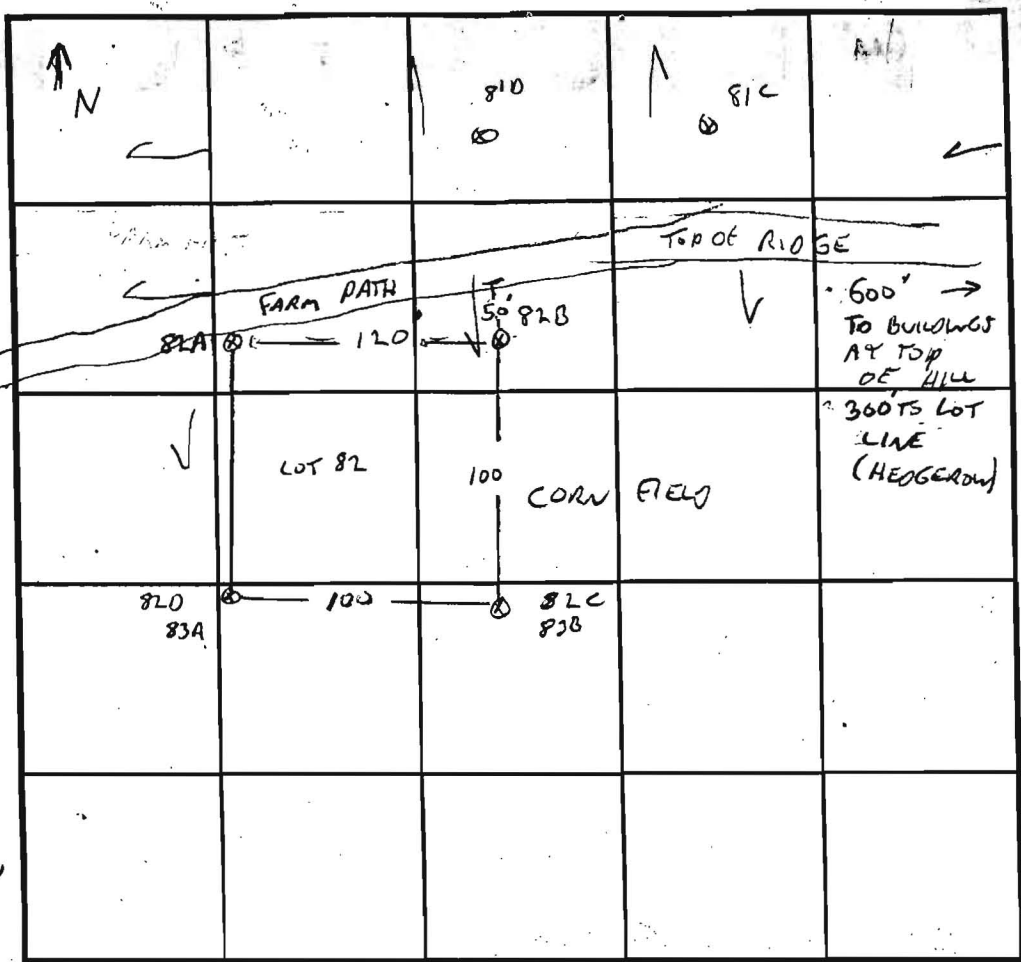 N
81D
81C
TOP OF RIDGE
FARM PATH
50'
82B
82A
120
600' →
TO BUILDINGS
AT TOP
OF HILL
300' TO LOT
LINE
(HEDGEROW)
LOT 82
100
CORN FIELD
82D
83A
100
82C
83B